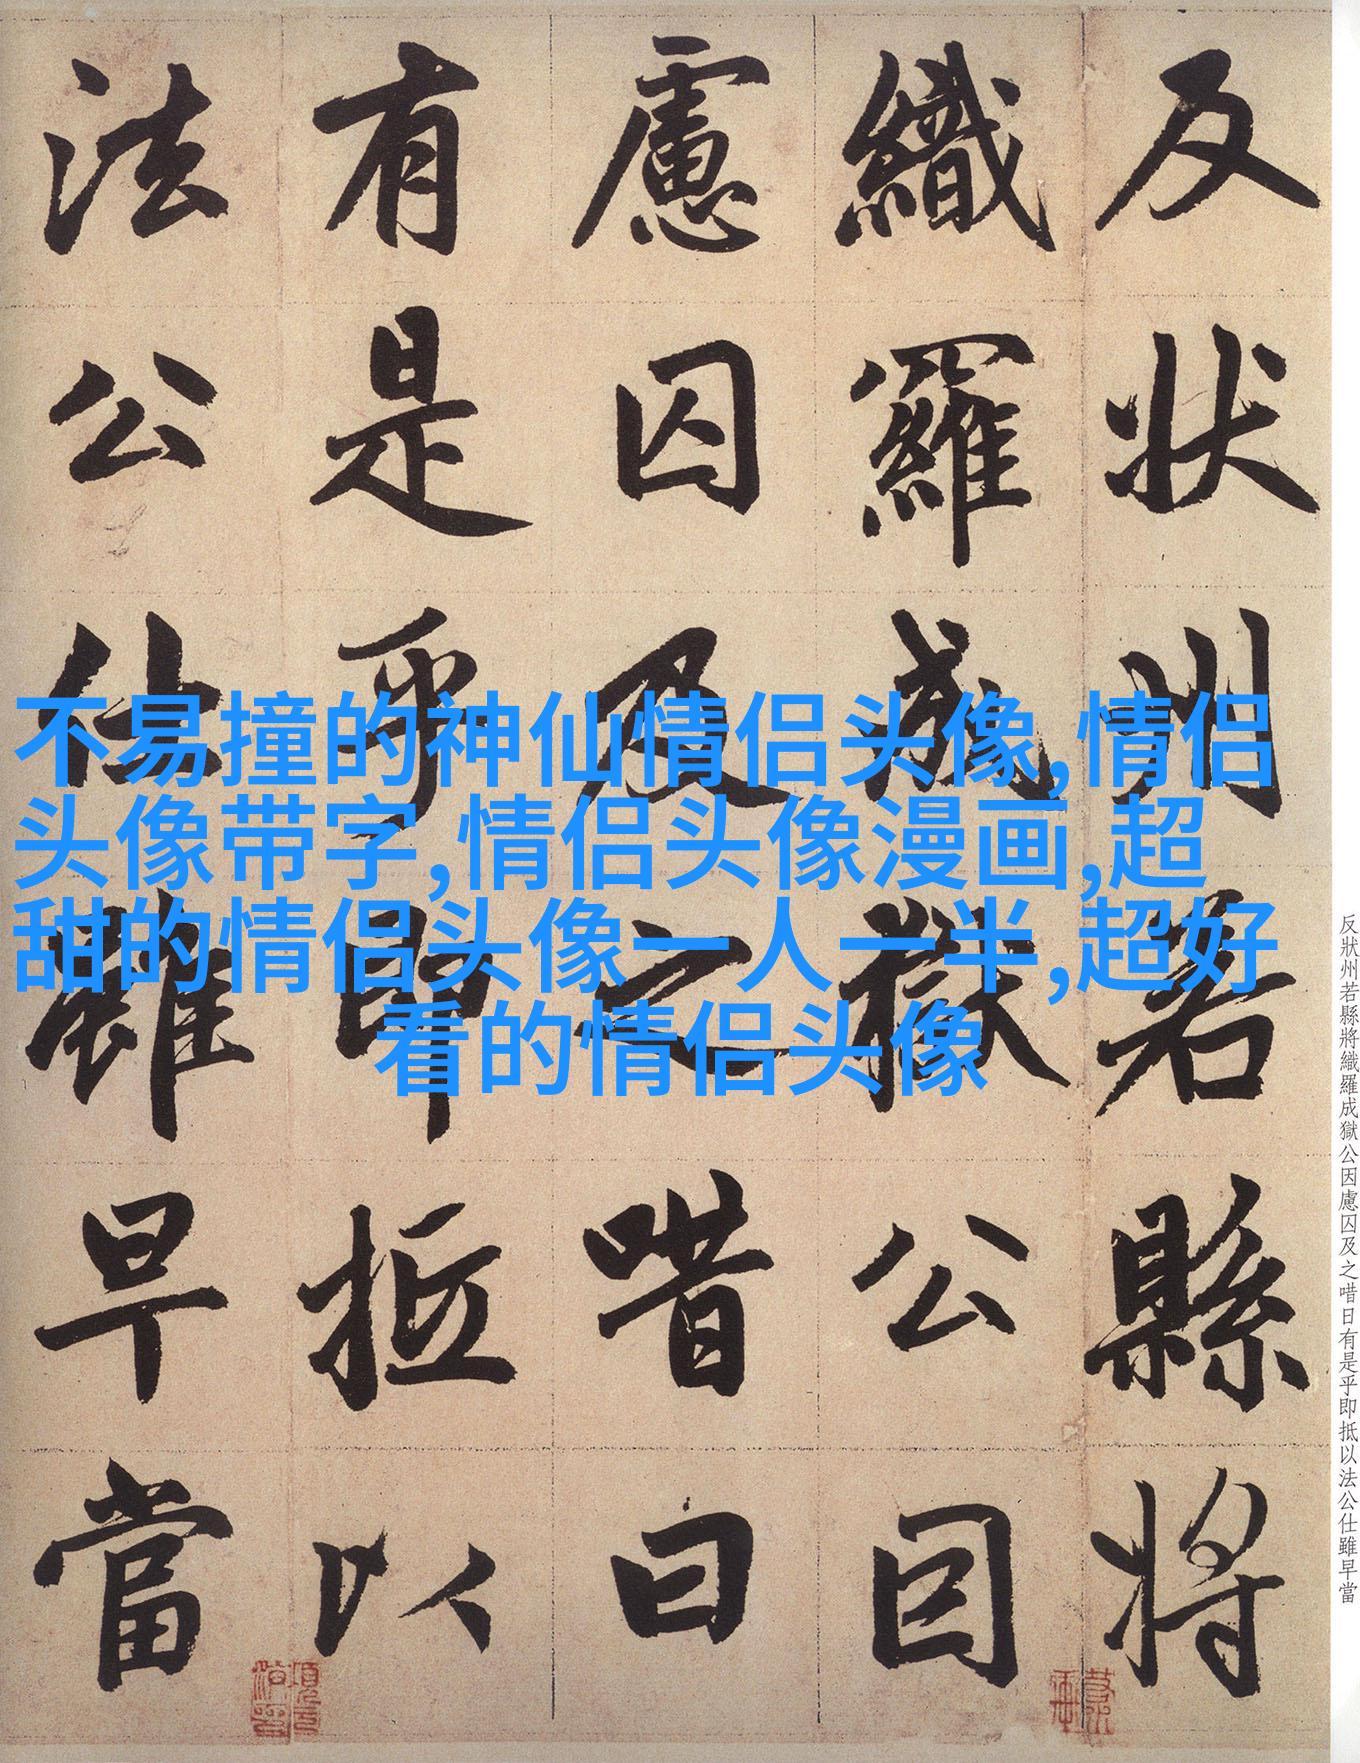 反状州若縣將
織羅成獄公因
慮囚及之唶曰
有是乎即抵以
法公仕雖早當
不易撞的神仙情侣头像,情侣
头像带字,情侣头像漫画,超
甜的情侣头像一人一半,超好
看的情侣头像
反狀州若縣將織羅成獄公因慮囚及之唶日有是乎即抵以法公仕雖早當